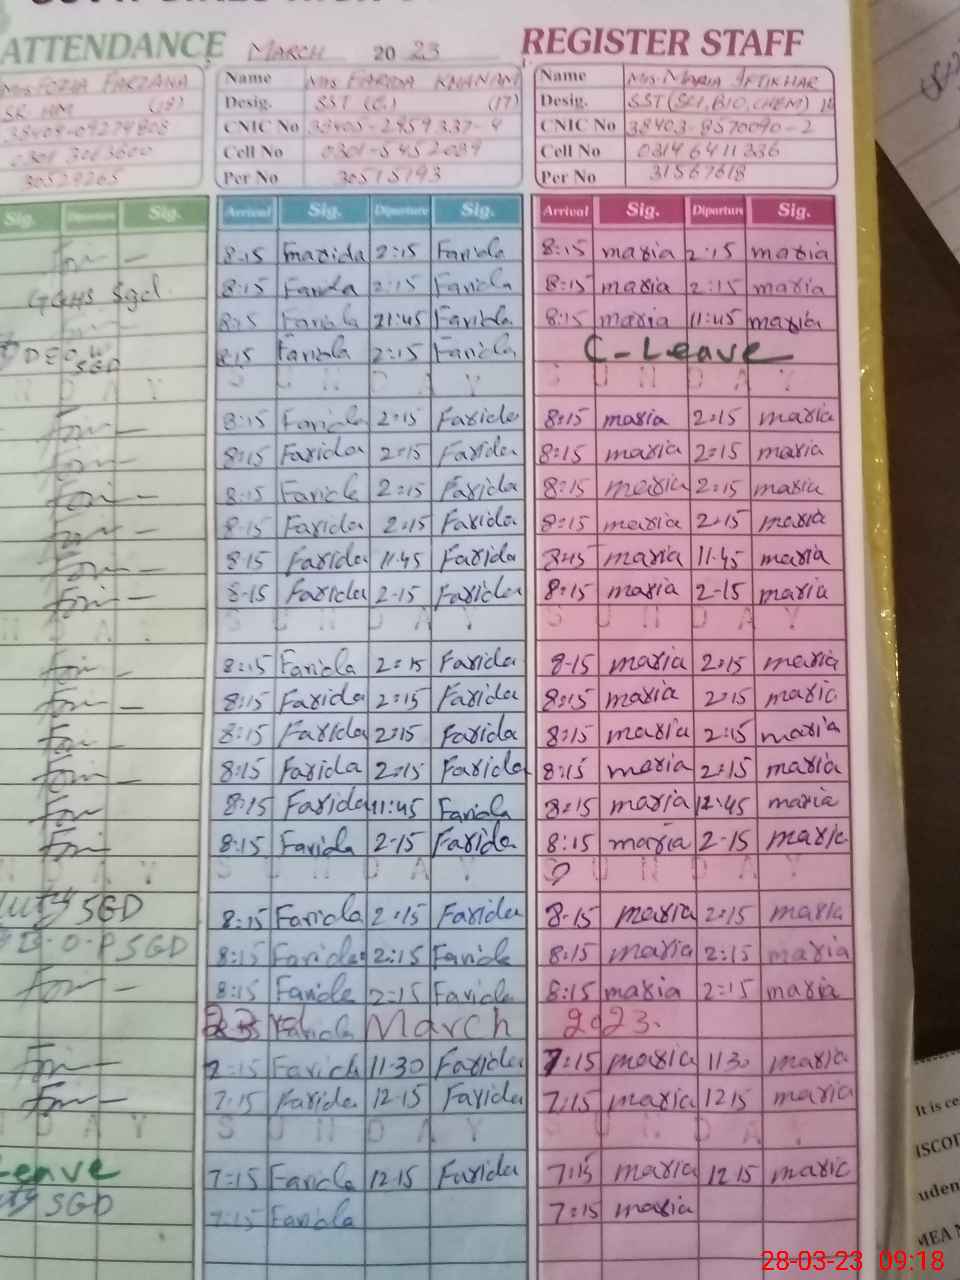 ATTENDANCE MARCH 2023 REGISTER STAFF
Mrs. FOZIA FARZANA Name Mrs. FARIDA KHANAM Name Mrs. MARIA IFTIKHAR
SR. HM (18) Desig. SST (G) (17) Desig. SST (SCI, BIO, CHEM)
CNIC No CNIC No 38403-8570090-2
Cell No Cell No 03146411336
30529265 Per No 30515793 Per No 31567618
Sig. Departure Sig. Arrival Sig. Diparture Sig. Arrival Sig. Diparture Sig.
8:15 Farida 2:15 Farida 8:15 maria 2:15 maria
GGHS Sgd. 8:15 Farida 2:15 Farida 8:15 maria 2:15 maria
8:15 Farida 11:45 Farida 8:15 maria 11:45 maria
DEO SGD 8:15 Farida 2:15 Farida C-Leave
N D A Y S U N D A Y S U N D A Y
8:15 Farida 2:15 Farida 8:15 maria 2:15 maria
8:15 Farida 2:15 Farida 8:15 maria 2:15 maria
8:15 Farida 2:15 Farida 8:15 maria 2:15 maria
8:15 Farida 2:15 Farida 8:15 maria 2:15 maria
8:15 Farida 11:45 Farida 8:15 maria 11:45 maria
8-15 Farida 2-15 Farida 8:15 maria 2-15 maria
N D A Y S U N D A Y S U N D A Y
8:15 Farida 2:15 Farida 8-15 maria 2:15 maria
8:15 Farida 2:15 Farida 8:15 maria 2:15 maria
8:15 Farida 2:15 Farida 8:15 maria 2:15 maria
8:15 Farida 2:15 Farida 8:15 maria 2:15 maria
8:15 Farida 11:45 Farida 8:15 maria 12:45 maria
8:15 Farida 2-15 Farida 8:15 maria 2-15 maria
N D A Y S U N D A Y S U N D A Y
SGD 8:15 Farida 2:15 Farida 8-15 maria 2:15 maria
SGD 8:15 Farida 2:15 Farida 8:15 maria 2:15 maria
8:15 Farida 2:15 Farida 8:15 maria 2:15 maria
23rd March 2023.
7:15 Farida 11-30 Farida 7:15 maria 11 30 maria
7:15 Farida 12-15 Farida 7:15 maria 12 15 maria
D A Y S U N D A Y S U N D A Y
Leave 7:15 Farida 12 15 Farida 7:15 maria 12 15 maria
SGD 7:15 Farida 7:15 maria
It is ce
28-03-23 09:18